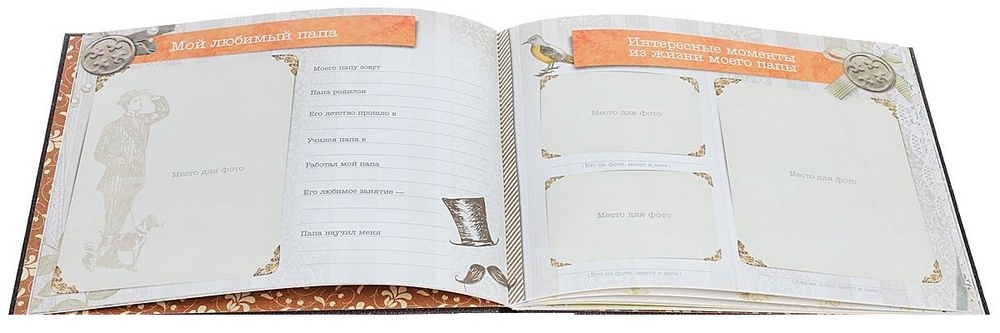 Мой любимый папа
Место для фото
Моего папу зовут
Папа родился
Его детство прошло в
Учился папа в
Работал мой папа
Его любимое занятие —
Папа научил меня
Интересные моменты
из жизни моего папы
Место для фото
(Кто на фото, место и дата)
Место для фото
(Кто на фото, место и дата)
Место для фото
(Кто на фото, место и дата)